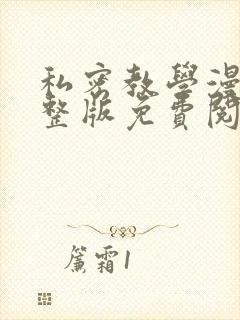 私密教學漫
整版免費閱
簾霜1